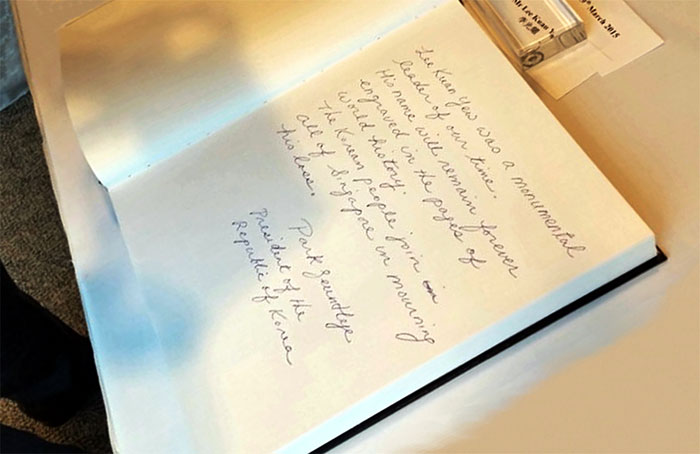 Lee Kuan Yew was a monumental
leader of our time.
His name will remain forever
engraved in the pages of
world history.
The Korean people join in
all of Singapore in mourning
his loss.
Park Geunhye
President of the
Republic of Korea
Mr Lee Kuan Y
李光耀
March 2015